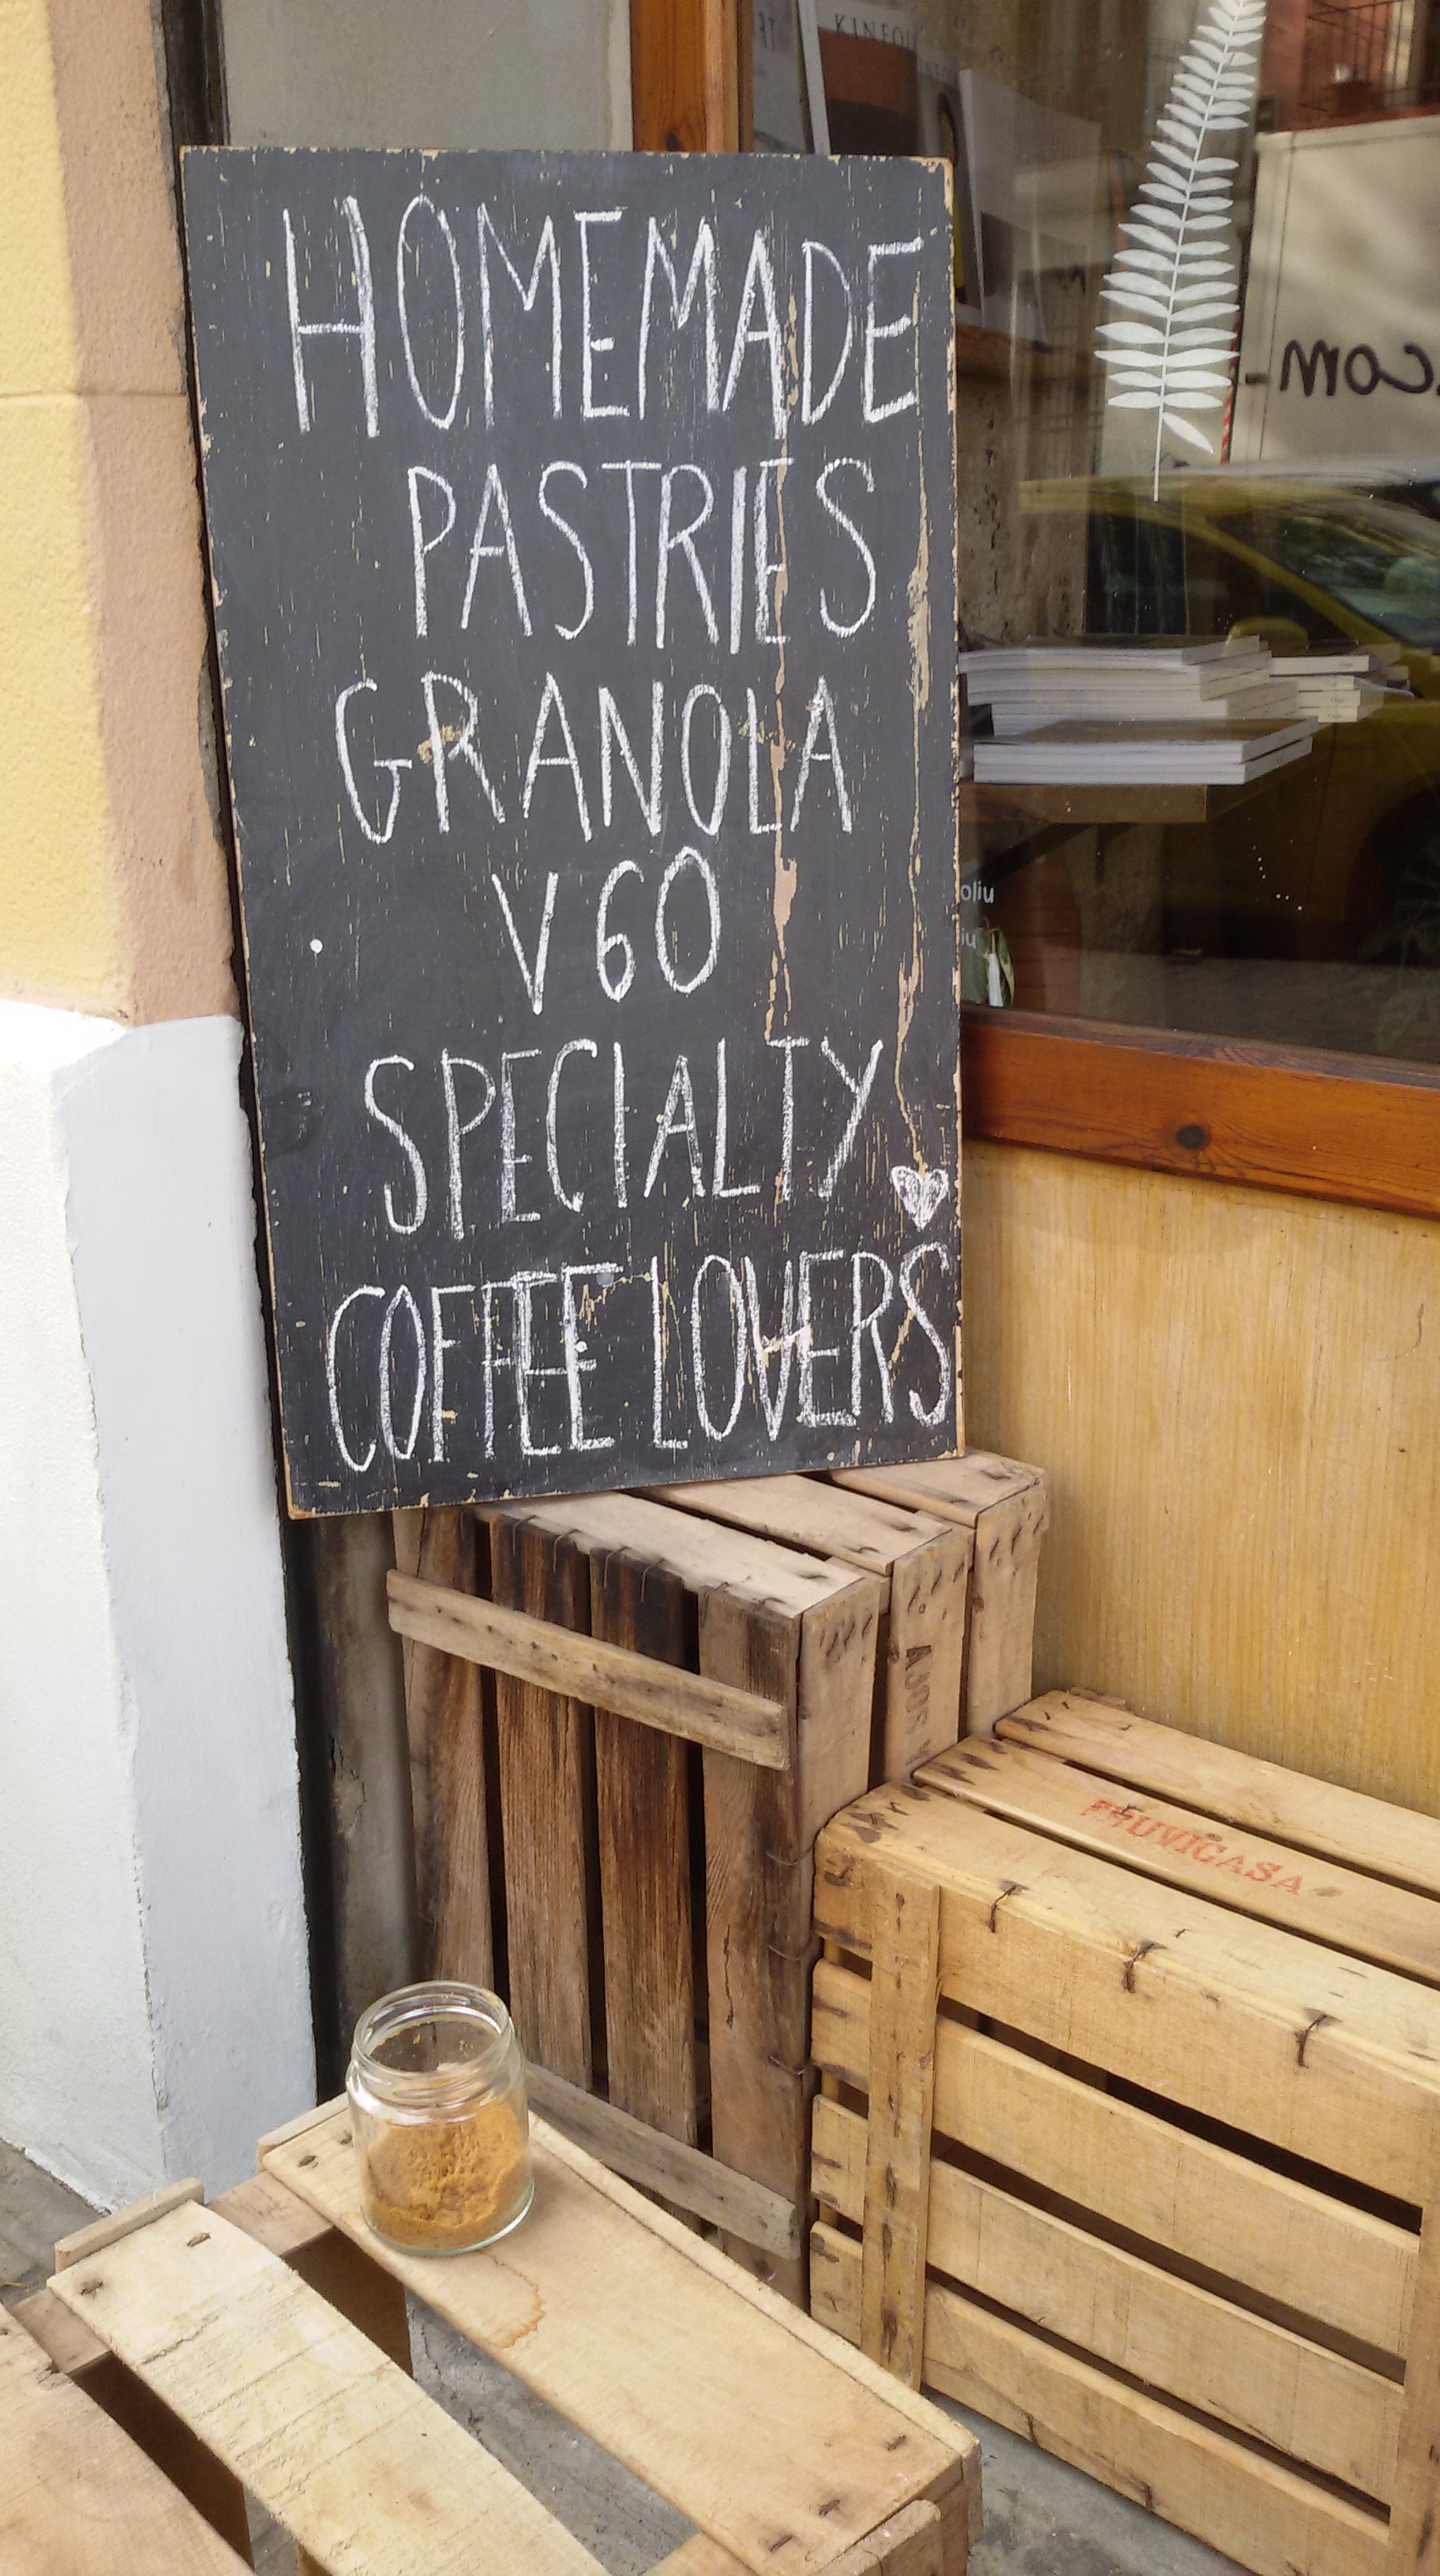 KINFO
HOMEMADE
PASTRIES
GRANOLA
V60
SPECIALTY
COFFEE LOVERS
.com
oliu
iu
FRUVICASA